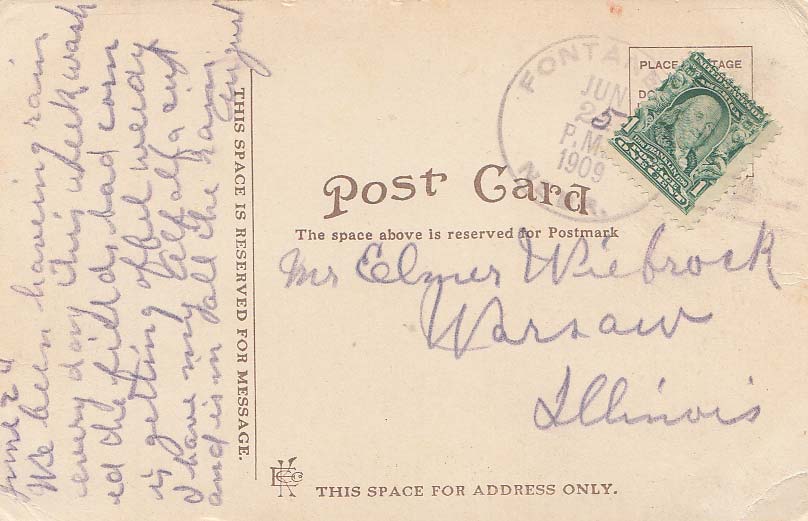 June 24
We been having rain
every day this week wash
ed the fields bad corn
is getting offul weedy
I have my alfalfa cut
and is in all the rain
August
THIS SPACE IS RESERVED FOR MESSAGE.
FONTANE
JUN
25
P.M.
1909
PLACE
1
1
Post Card
The space above is reserved for Postmark
Mr Elmer Wiebrock
Warsaw
Illinois
THIS SPACE FOR ADDRESS ONLY.